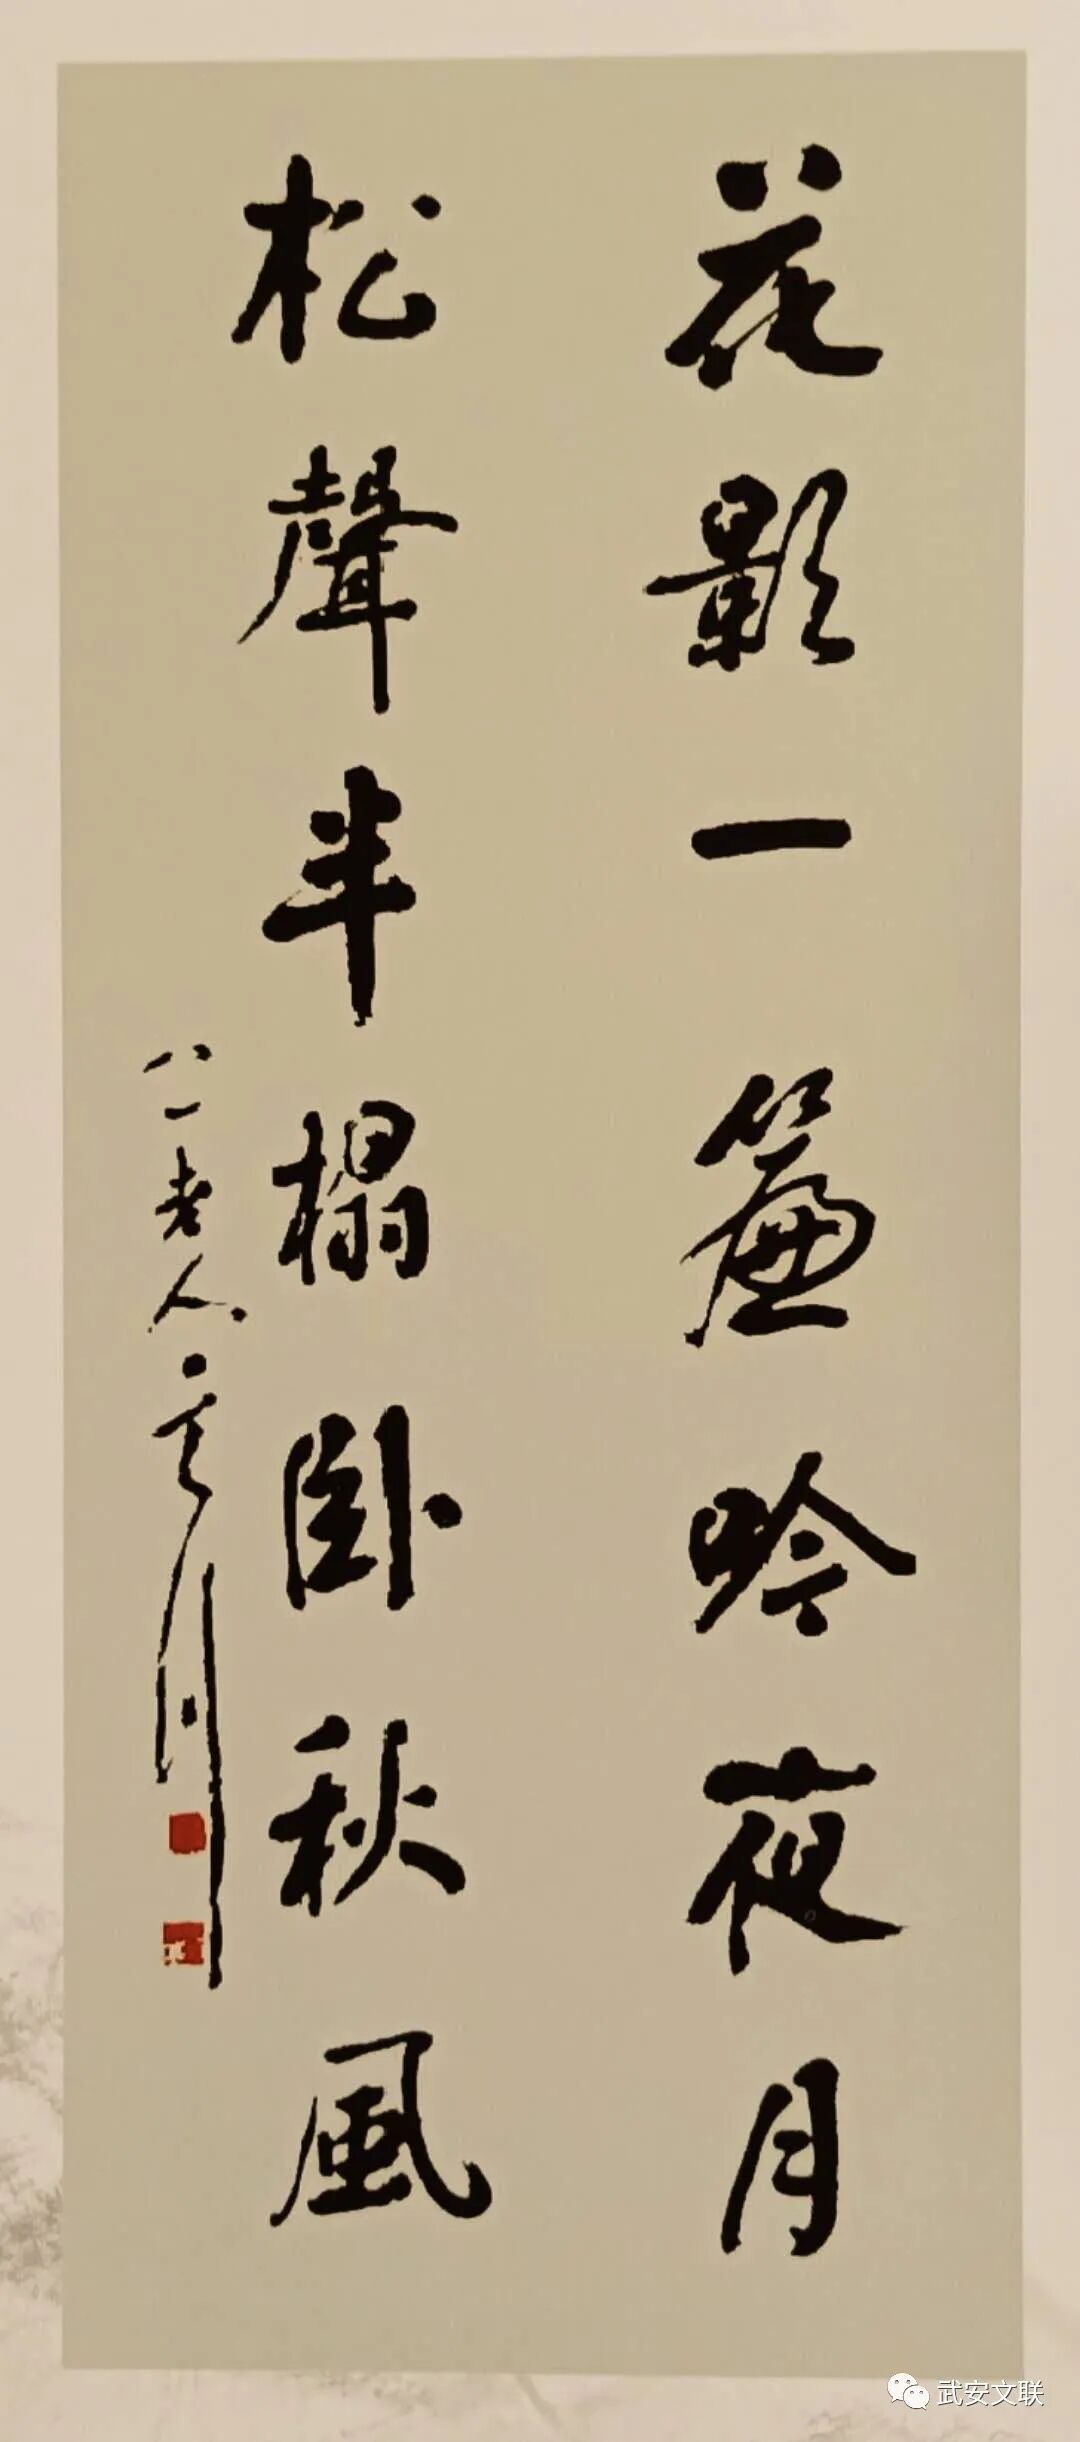 花影一簾吟夜月
松聲半榻卧秋風
八一老人
武安文联